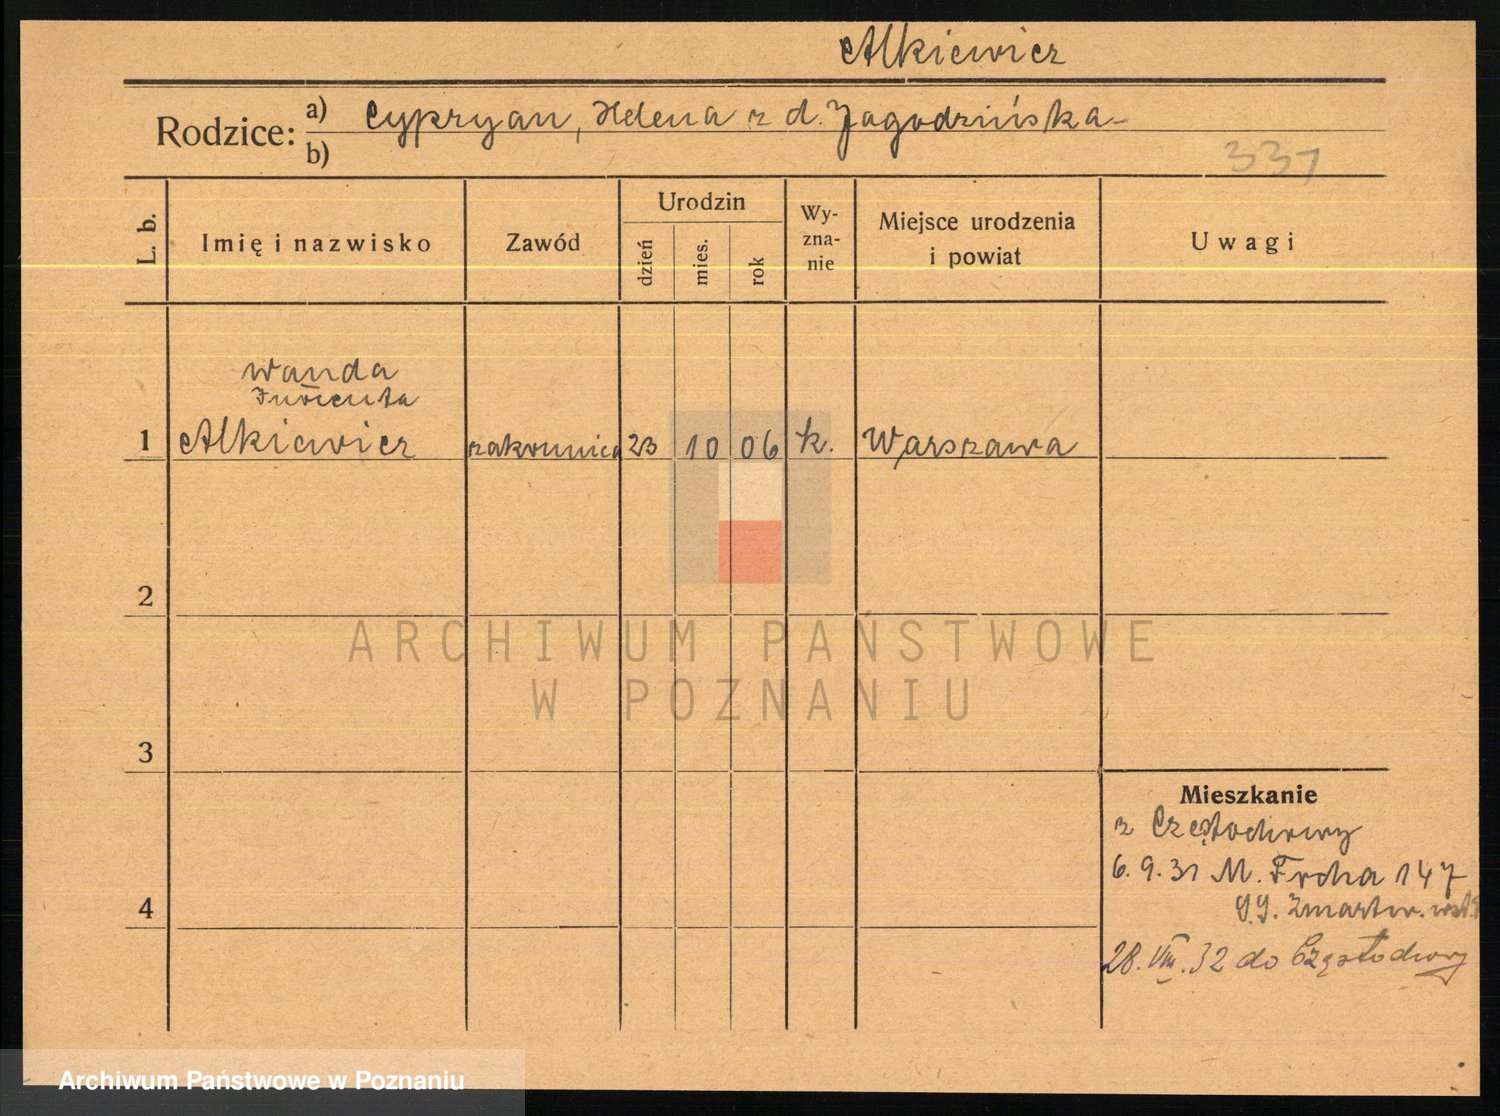 Alkiewicz
Rodzice: a) Cypryan, Helena z d. Jagodzińska
b)
331
L. b.
Imię i nazwisko
Zawód
Urodzin
dzień
mies.
rok
Wy-
zna-
nie
Miejsce urodzenia
i powiat
Uwagi
Wanda
1 Alkiewicz zakonnica 23 10 06 k. Warszawa
2
ARCHIWUM PAŃSTWOWE
W POZNANIU
3
Mieszkanie
z Częstochowy
6. 9. 31 M. Focha 147
4
Zmartw. wst.
28. VIII. 32 do Częstochowy
Archiwum Państwowe w Poznaniu